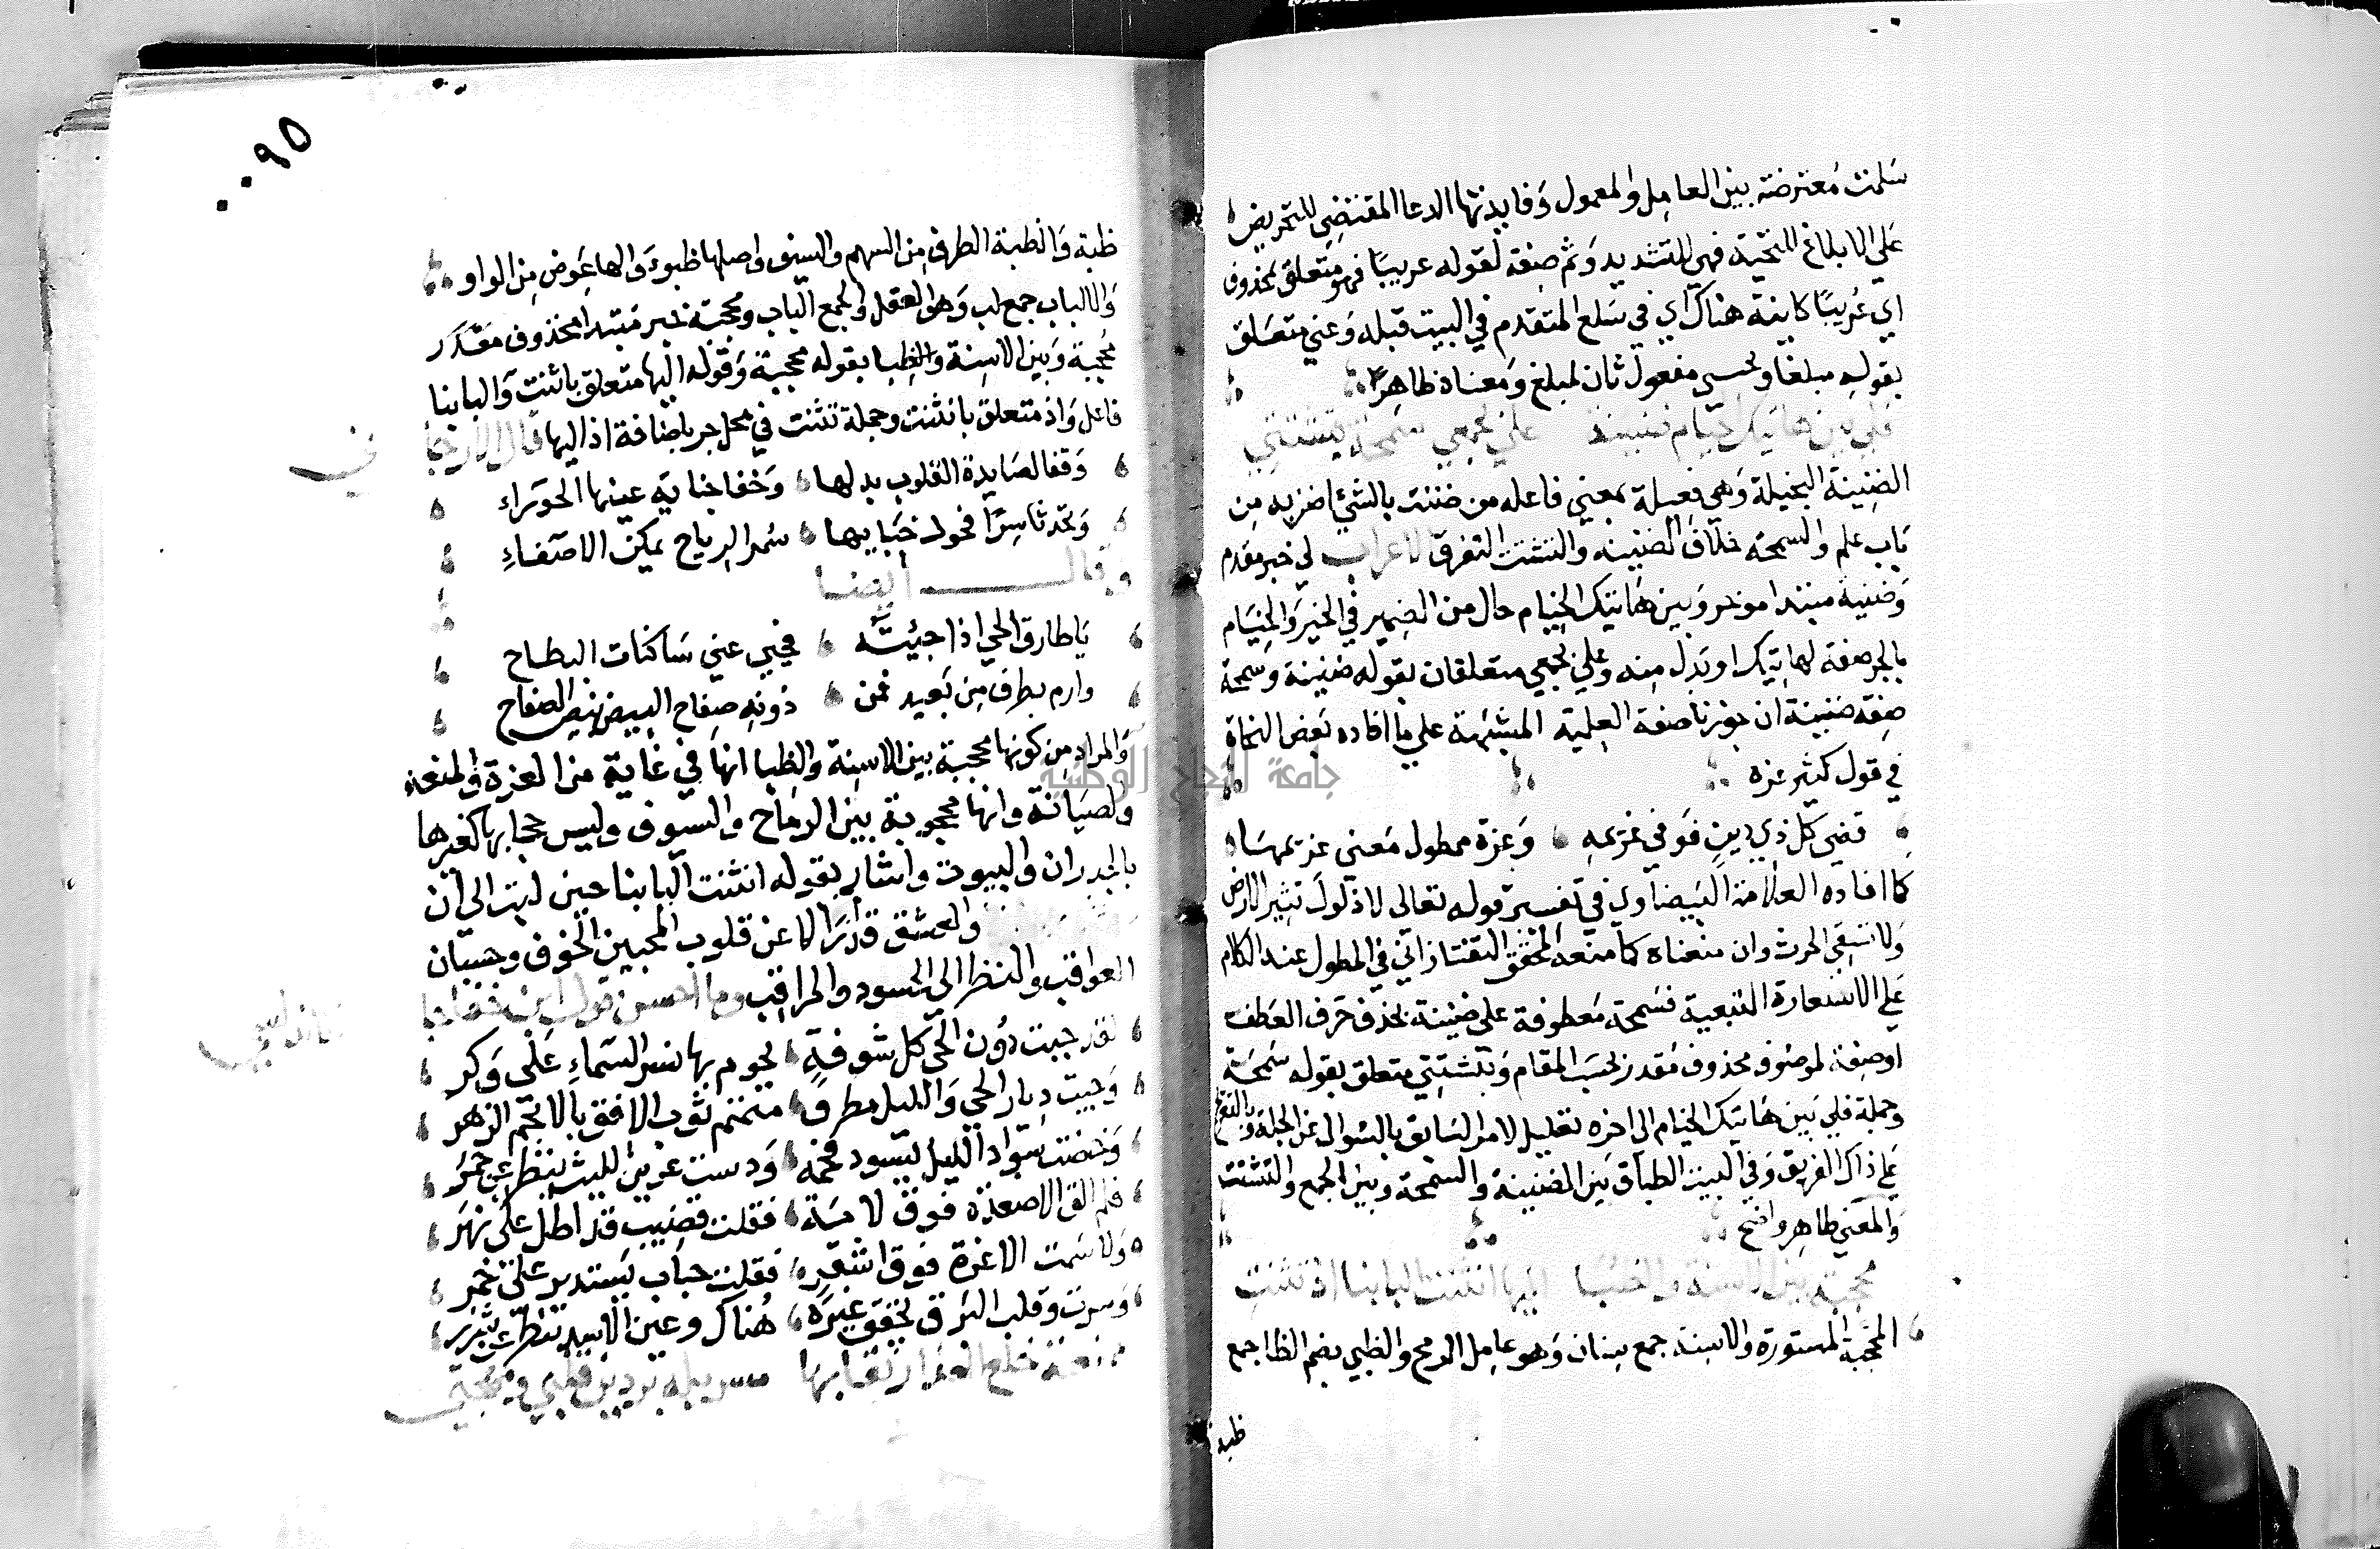 سلمت معترضة بين العامل والمعمول وفايدتها الدعا المقتضي للتحريض
على الابلاغ للتحية فهي للتشديد وثم صفة لقوله عريبا فهو متعلق بمحذوف
اي عريبا كاينة هناك اي في سلع المتقدم في البيت قبله وعني متعلق
بقوله مبلغا وتحسى مفعول ثان لمبلغ ومعناه ظاهر
فلي بين هاتيك الخيام ضنينة علي بجمعي سمحة بتشتتي
الضنينة البخيلة وهي فعيلة بمعني فاعله من ضننت بالشيء اضن به من
باب علم والسمحة خلاف الضنينه والتشتت التفرق الاعراب لي خبر مقدم
وضنينة مبتدا موخر وبين هاتيك الخيام حال من الضمير في الخبر والخيام
بالجر صفة لهاتيك او بدل منه وعلي بجمعي متعلقان بقوله ضنينة وسمحة
صفة ضنينة ان جوزنا صفة العلية المشبهة علي ما افاده بعض النحاة
في قول كثير عزه
قضى كل ذي دين فوفي غريمه وعزة ممطول معنى غريمها
كما افاده العلامة البيضاوي في تفسير قوله تعالى لا ذلول تثير الارض
ولا تسقي الحرث وان منعناه كما منعه المحقق التفتازاني في المطول عند الكلام
علي الاستعارة التبعية فسمحة معطوفة على ضنينة بحذف حرف العطف
او صفة لموصوف محذوف مقدر بحسب المقام وبتشتتي متعلق بقوله سمحة
وجملة فلي بين هاتيك الخيام الى اخره تعليل لامر السابق بالسوال عن الحلة
علي ذاك الفريق وفي البيت الطباق بين الضنينة والسمحة وبين الجمع والتشتت
والمعني ظاهر واضح
محجبة بين الاسنة والظبا اليها انثنت البابنا اذ تثنت
المحجبة المستورة والاسنة جمع سنان وهو عامل الرمح والظبي بضم الظا جمع
ظبة
٠٠٩٥
ظبة والظبة الطرف من السهم والسيف واصلها ظبو والها عوض من الواو
والالباب جمع لب وهو العقل والجمع الباب ومحجبة خبر مبتدا محذوف مقدر
محجبة وبين الاسنة والظبا بقوله محجبة وقوله اليها متعلق بانثنت والبابنا
فاعل واذ متعلق بانثنت وجملة تثنت في محل جر باضافة اذ اليها قال الارجا
ني
وقفا لصايدة القلوب بدلها وخفا جناية عينها الحوراء
وتحدثا سرا فحول خبايها سمر الرماح يملن للاصغاء
وقال ايضا
يا طارق الحي اذا جئته فحي عني ساكنات البطاح
وارم بطرف من بعيد فمن دونه صفاح البيض بيض الصفاح
والمراد من كونها محجبة بين الاسنة والظبا انها في غاية من العزة والمنعة
والصيانة وانها محجوبة بين الرماح والسيوف وليس حجابها كغيرها
بالجدران والبيوت واشار بقوله انثنت البابنا حين اليها الى ان
والعشق قد ازالا عن قلوب المحبين الخوف وحسبان
العواقب والنظر الى الحسود والمراقب وما احسن قول ابن خفاجا
لقد جبت دون الحي كل تنوفة يحوم بها نسر السماء على وكر
وجبت ديار الحي والليل مطرق منمنم ثوب الافق بالانجم الزهر
وخضت سواد الليل يسود فحمه ودست عرين الليث ينظر عن جمر
فلم الق الا صعدة فوق لامة فقلت قضيب قد اطل على نهر
ولا شمت الا غرة فوق اشقر فقلت حباب يستدير على خمر
وسرت وقلب البرق يخفق غيرة هناك وعين الاسد تنظر عن شزر
ممنعة خلع العذار نقابها مسربلة بردين قلبي ومهجتي